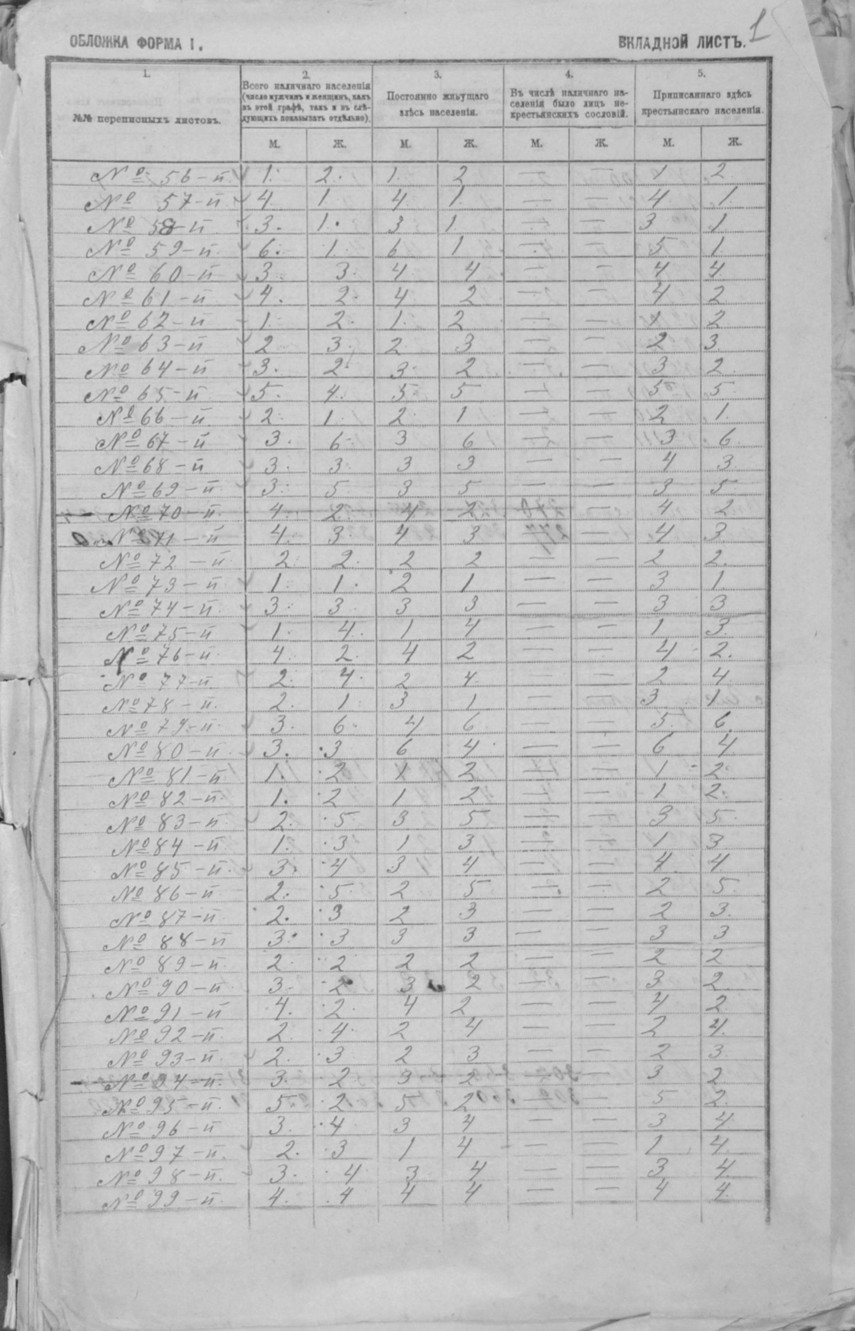 1
ОБЛОЖКА ФОРМА I. ВКЛАДНОЙ ЛИСТЪ.
1. 2. 3. 4. 5.
№№ переписныхъ листовъ.
Всего наличнаго населенія
(число мужчинъ и женщинъ, какъ
въ этой графѣ, такъ и въ слѣ-
дующихъ показывать отдѣльно).
Постоянно живущаго
здѣсь населенія.
Въ числѣ наличнаго на-
селенія было лицъ не-
крестьянскихъ сословій.
Приписаннаго здѣсь
крестьянскаго населенія.
М. Ж. М. Ж. М. Ж. М. Ж.
№ 56-й 1. 2. 1. 2 — — 1 2
№ 57-й 4 1 4 1 — — 4 1
№ 58-й 3. 1. 3 1 — — 3 1
№ 59-й 6. 1 6 1 — — 5 1
№ 60-й 3 3. 4 4 — — 4 4
№ 61-й 4. 2. 4 2 — — 4 2
№ 62-й 1. 2. 1. 2 — — 1 2
№ 63-й 2 3 2 3 — — 2 3.
№ 64-й 3. 2 3 2 — — 3 2.
№ 65-й 5. 4. 5 5 — — 5 5
№ 66-й 2. 1 2 1 — — 2 1.
№ 67-й 3. 6. 3 6 — — 3 6.
№ 68-й 3. 3. 3 3 — — 4 3.
№ 69-й 3. 5. 3 5 — — 3 5
№ 70-й 4. 2 4 2 — — 4 2
№ 71-й 4. 3 4 3 — — 4 3
№ 72-й 2 2. 2 2 — — 2 2.
№ 73-й 1. 1. 2 1 — — 3 1
№ 74-й 3. 3 3 3 — — 3 3
№ 75-й 1. 4. 1 4 — — 1 3
№ 76-й 4. 2. 4 2 — — 4 2.
№ 77-й 2. 4. 2 4. — — 2 4.
№ 78-й 2. 1 3 1 — — 3 1
№ 79-й 3. 6. 4 6 — — 5 6
№ 80-й 3. 3 6 4 — — 6 4
№ 81-й 1. 2 1 2 — — 1 2.
№ 82-й 1. 2 1 2. — — 1 2.
№ 83-й 2. 5 3 5 — — 3 5.
№ 84-й 1. 3 1 3 — — 1 3
№ 85-й 3. 4 3 4 — — 4 4
№ 86-й 2. 5. 2 5 — — 2 5.
№ 87-й 2. 3 2 3 — — 2 3.
№ 88-й 3. 3 3 3 — — 3 3
№ 89-й 2. 2 2 2 — — 2 2
№ 90-й 3. 2 3 2 — — 3 2
№ 91-й 4. 2. 4 2 — — 4 2
№ 92-й 2. 4. 2 4 — — 2 4.
№ 93-й 2. 3 2 3 — — 2 3
№ 94-й 3. 2 3 2 — — 3 2
№ 95-й 5. 2 5 2 — — 5 2.
№ 96-й 3. 4 3 4 — — 3 4
№ 97-й 2. 3 1 4 — — 1 4.
№ 98-й 3. 4 3 4 — — 3 4
№ 99-й 4. 4 4 4 — — 4 4.